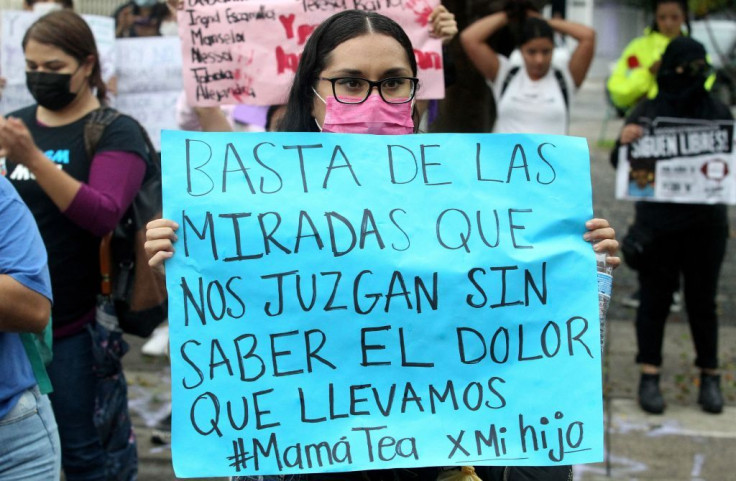 Ingrid Escamilla
Marisela
Alessa
Alejandra
Y
BASTA DE LAS
MIRADAS QUE
NOS JUZGAN SIN
SABER EL DOLOR
QUE LLEVAMOS
#MamáTea xMi hijo
SIGUEN LIBRES!